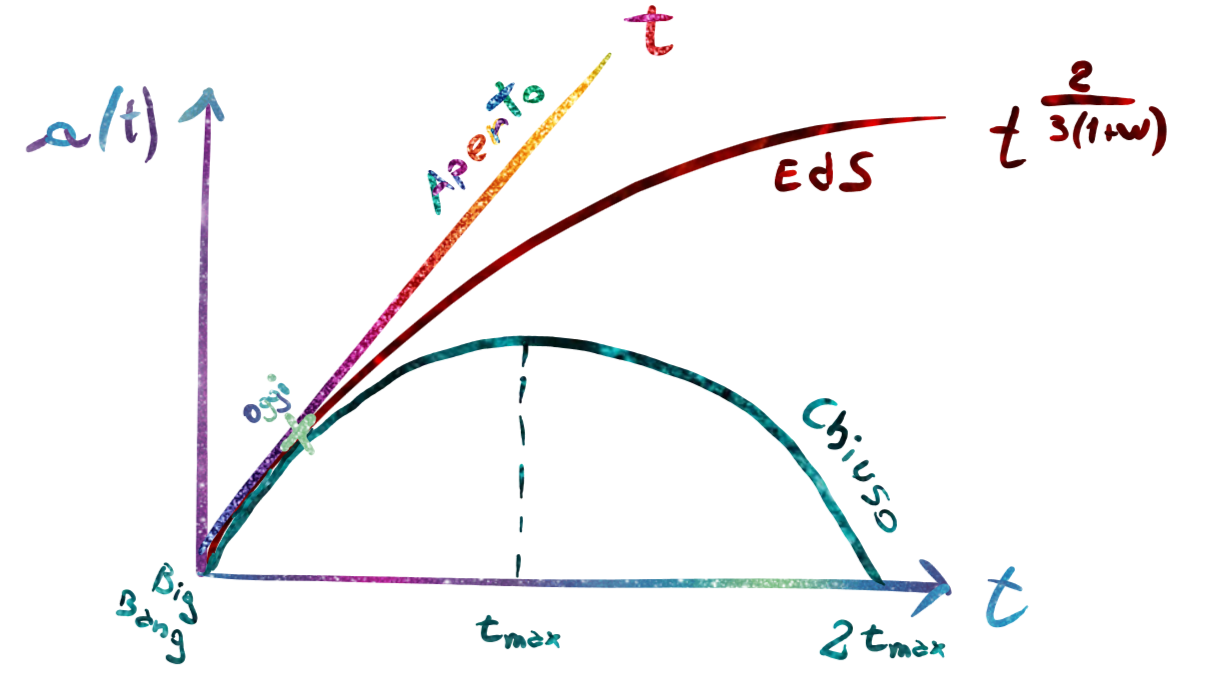 t
a(t)
Aperto
t^{\frac{2}{3(1+w)}}
EdS
oggi
Chiuso
Big
Bang
t_{max}
2 t_{max}
t